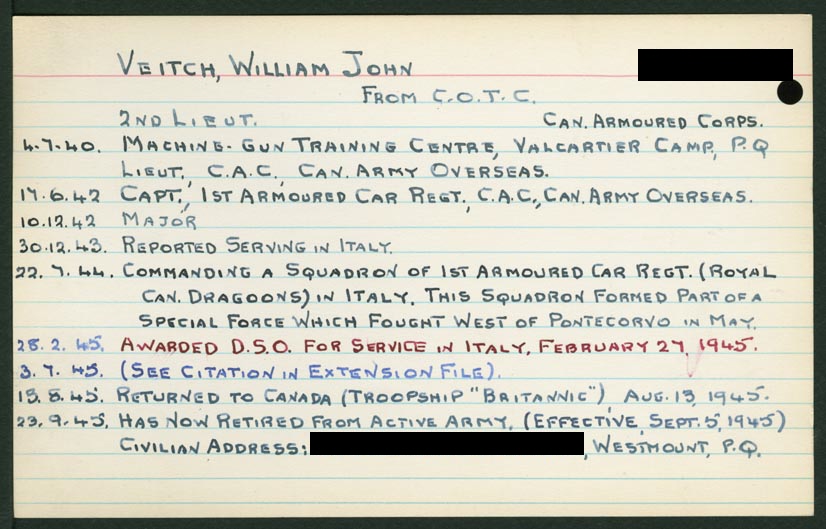 VEITCH, WILLIAM JOHN
FROM C.O.T.C.
2ND LIEUT. CAN. ARMOURED CORPS.
4.7.40. MACHINE-GUN TRAINING CENTRE, VALCARTIER CAMP, P.Q
LIEUT, C.A.C, CAN. ARMY OVERSEAS.
17.6.42 CAPT., 1ST ARMOURED CAR REGT., C.A.C., CAN. ARMY OVERSEAS.
10.12.42 MAJOR
30.12.43. REPORTED SERVING IN ITALY.
22.7.44. COMMANDING A SQUADRON OF 1ST ARMOURED CAR REGT. (ROYAL
CAN. DRAGOONS) IN ITALY. THIS SQUADRON FORMED PART OF A
SPECIAL FORCE WHICH FOUGHT WEST OF PONTECORVO IN MAY.
28.2.45. AWARDED D.S.O. FOR SERVICE IN ITALY, FEBRUARY 27, 1945.
3.7.45. (SEE CITATION IN EXTENSION FILE).
15.8.45. RETURNED TO CANADA (TROOPSHIP "BRITANNIC") AUG. 13, 1945.
23.9.45. HAS NOW RETIRED FROM ACTIVE ARMY. (EFFECTIVE, SEPT. 5, 1945)
CIVILIAN ADDRESS: , WESTMOUNT, P.Q.